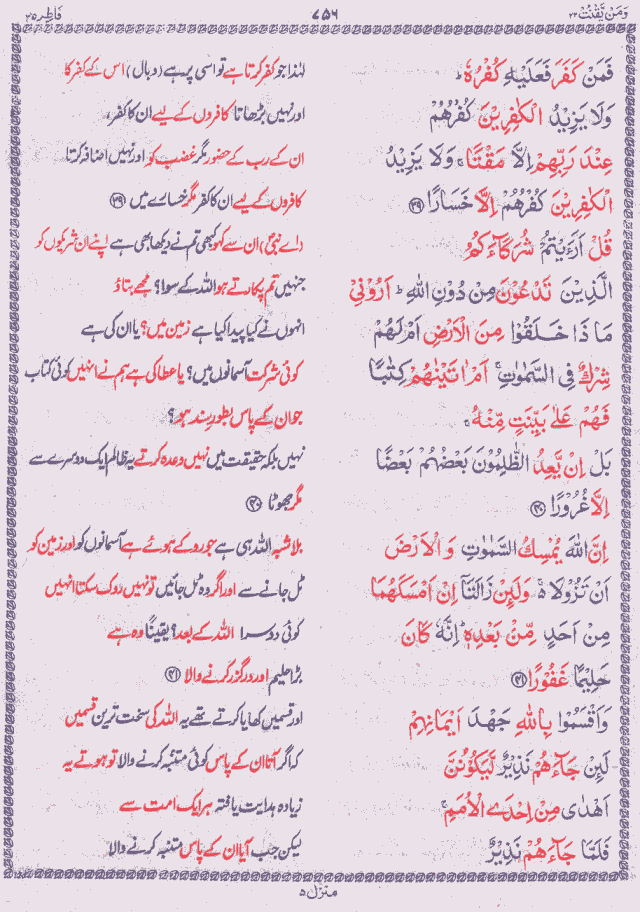 وَمَنْ يَّقْنُتْ ٢٢
٧٥٦
فَاطِر ٣٥
فَمَنْ كَفَرَ فَعَلَيْهِ كُفْرُهٗ ؕ
لہٰذا جو کفر کرتا ہے تو اسی پر ہے (وبال) اس کے کفر کا
وَلَا يَزِيْدُ الْكٰفِرِيْنَ كُفْرُهُمْ
اور نہیں بڑھاتا کافروں کے لیے ان کا کفر،
عِنْدَ رَبِّهِمْ اِلَّا مَقْتًا ۚ وَلَا يَزِيْدُ
ان کے رب کے حضور مگر غضب کو اور نہیں اضافہ کرتا
الْكٰفِرِيْنَ كُفْرُهُمْ اِلَّا خَسَارًا ۝٣٩
کافروں کے لیے ان کا کفر مگر خسارے میں ۝٣٩
قُلْ اَرَءَيْتُمْ شُرَكَآءَكُمُ
(اے نبیؐ) ان سے کہو کبھی تم نے دیکھا بھی ہے اپنے ان شریکوں کو
الَّذِيْنَ تَدْعُوْنَ مِنْ دُوْنِ اللّٰهِ ؕ اَرُوْنِيْ
جنہیں تم پکارتے ہو اللہ کے سوا؟ مجھے بتاؤ
مَا ذَا خَلَقُوْا مِنَ الْاَرْضِ اَمْ لَهُمْ
انہوں نے کیا پیدا کیا ہے زمین میں؟ یا ان کی ہے
شِرْكٌ فِي السَّمٰوٰتِ ۚ اَمْ اٰتَيْنٰهُمْ كِتٰبًا
کوئی شرکت آسمانوں میں؟ یا عطا کی ہے ہم نے انہیں کوئی کتاب
فَهُمْ عَلٰى بَيِّنَتٍ مِّنْهُ ۚ
جو ان کے پاس بطور سند ہو؟
بَلْ اِنْ يَّعِدُ الظّٰلِمُوْنَ بَعْضُهُمْ بَعْضًا
نہیں بلکہ حقیقت میں نہیں وعدہ کرتے یہ ظالم ایک دوسرے سے
اِلَّا غُرُوْرًا ۝٤٠
مگر جھوٹا ۝٤٠
اِنَّ اللّٰهَ يُمْسِكُ السَّمٰوٰتِ وَالْاَرْضَ
بلاشبہ اللہ ہی ہے جو روکے ہوئے ہے آسمانوں کو اور زمین کو
اَنْ تَزُوْلَا ۚ وَلَئِنْ زَالَتَاۤ اِنْ اَمْسَكَهُمَا
ٹل جانے سے اور اگر وہ ٹل جائیں تو نہیں روک سکتا انہیں
مِنْ اَحَدٍ مِّنْ بَعْدِهٖ ؕ اِنَّهٗ كَانَ
کوئی دوسرا اللہ کے بعد؟ یقیناً وہ ہے
حَلِيْمًا غَفُوْرًا ۝٤١
بڑا حلیم اور درگزر کرنے والا ۝٤١
وَاَقْسَمُوْا بِاللّٰهِ جَهْدَ اَيْمَانِهِمْ
اور قسمیں کھایا کرتے تھے یہ اللہ کی سخت ترین قسمیں
لَئِنْ جَآءَهُمْ نَذِيْرٌ لَّيَكُوْنُنَّ
کہ اگر آتا ان کے پاس کوئی متنبّہ کرنے والا تو ہوتے یہ
اَهْدٰى مِنْ اِحْدَى الْاُمَمِ ۚ
زیادہ ہدایت یافتہ ہر ایک امت سے
فَلَمَّا جَآءَهُمْ نَذِيْرٌ
لیکن جب آیا ان کے پاس متنبہ کرنے والا
منزل ٥